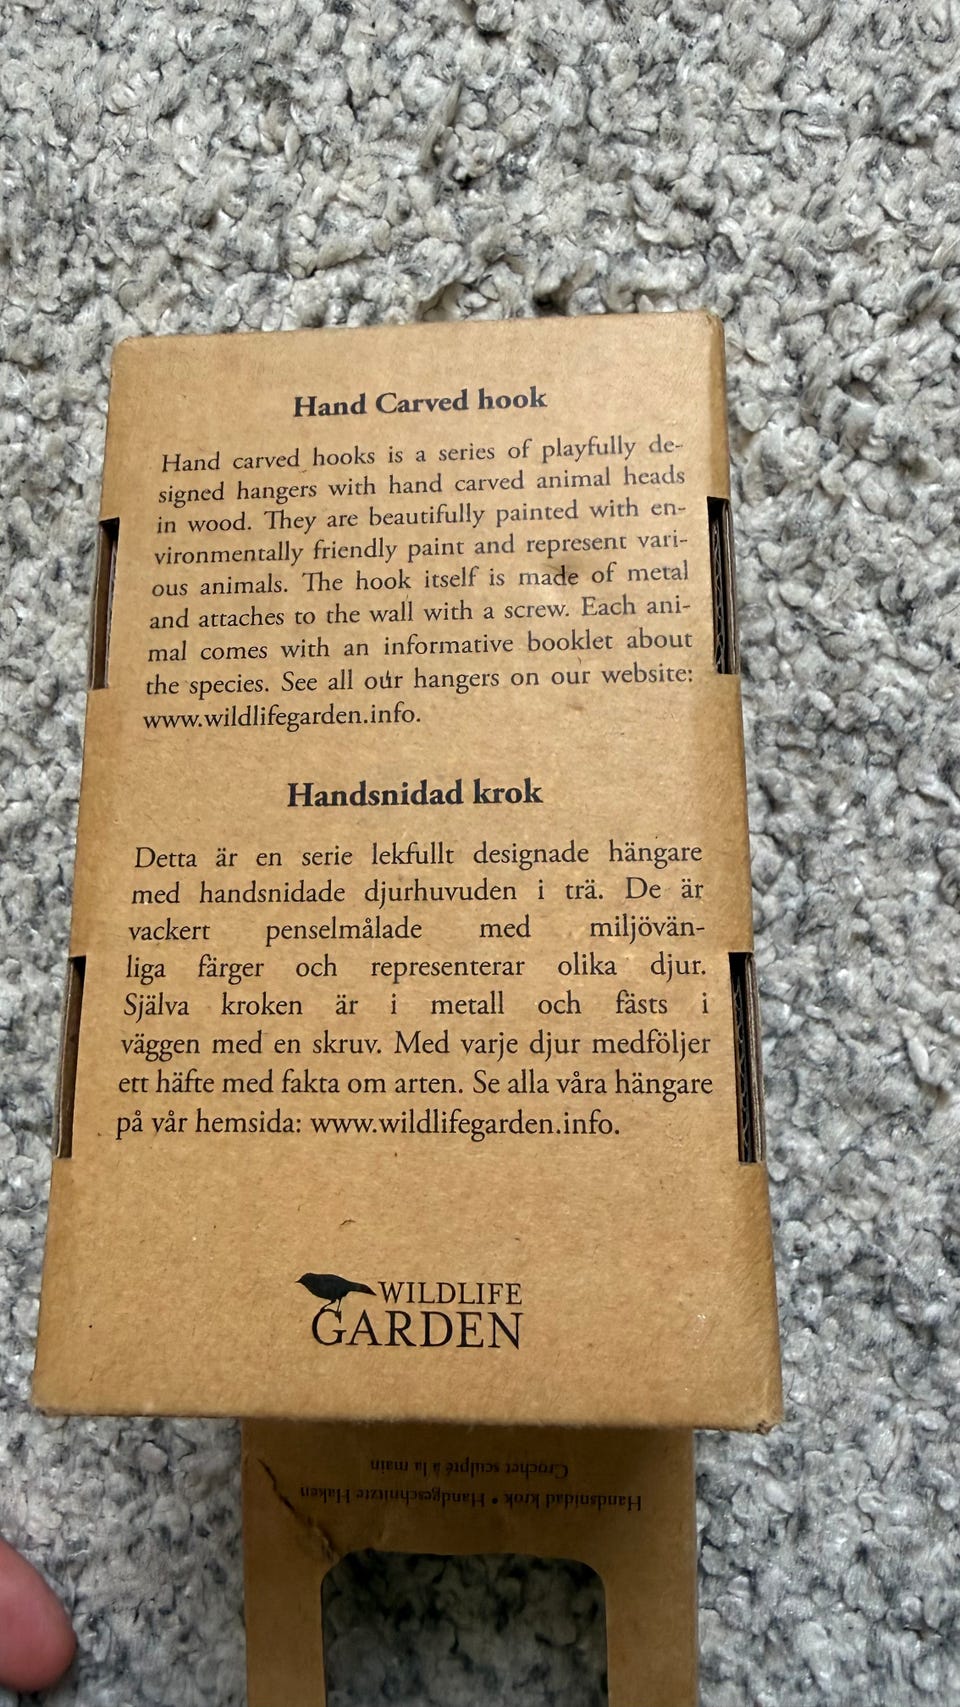 Hand Carved hook
Hand carved hooks is a series of playfully de-
signed hangers with hand carved animal heads
in wood. They are beautifully painted with en-
vironmentally friendly paint and represent vari-
ous animals. The hook itself is made of metal
and attaches to the wall with a screw. Each ani-
mal comes with an informative booklet about
the species. See all our hangers on our website:
www.wildlifegarden.info.
Handsnidad krok
Detta är en serie lekfullt designade hängare
med handsnidade djurhuvuden i trä. De är
vackert penselmålade med miljövän-
liga färger och representerar olika djur.
Själva kroken är i metall och fästs i
väggen med en skruv. Med varje djur medföljer
ett häfte med fakta om arten. Se alla våra hängare
på vår hemsida: www.wildlifegarden.info.
WILDLIFE
GARDEN
Handsnidad krok • Handgeschnitzte Haken
Crochet sculpté à la main